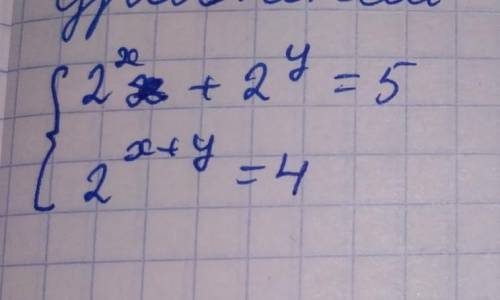 2^x + 2^y = 5
2^{x+y} = 4